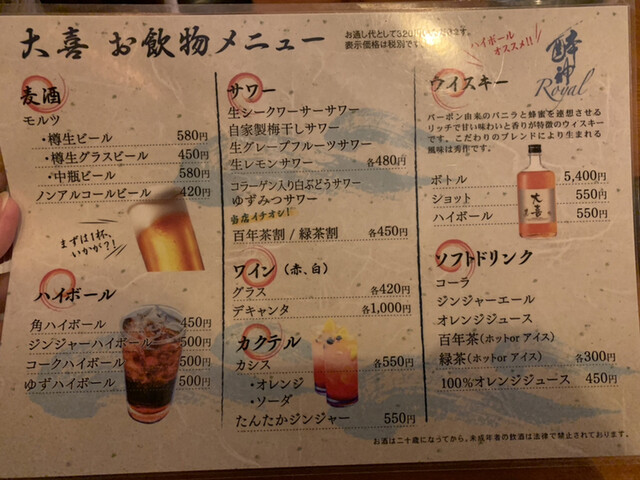 大喜 お飲物メニュー
表示価格は税別です。
麦酒
モルツ
・樽生ビール 580円
・樽生グラスビール 450円
・中瓶ビール 580円
ノンアルコールビール 420円
まずは1杯、
いかが?!
ハイボール
角ハイボール 450円
ジンジャーハイボール 500円
コークハイボール 500円
ゆずハイボール 500円
サワー
生シークワーサーサワー
自家製梅干しサワー
生グレープフルーツサワー
生レモンサワー 各480円
コラーゲン入り白ぶどうサワー
ゆずみつサワー
当店イチオシ!
百年茶割 / 緑茶割 各450円
ワイン (赤、白)
グラス 各420円
デキャンタ 各1,000円
カクテル
カシス 各550円
・オレンジ
・ソーダ
たんたかジンジャー 550円
ハイボール
オススメ!!
酔神
Royal
ウイスキー
バーボン由来のバニラと蜂蜜を連想させる
リッチで甘い味わいと香りが特徴のウィスキー
です。こだわりのブレンドにより生まれる
風味は秀作です。
ボトル 5,400円
ショット 550円
ハイボール 550円
大喜
ソフトドリンク
コーラ
ジンジャーエール
オレンジジュース
百年茶(ホットor アイス)
緑茶(ホットor アイス) 各300円
100%オレンジジュース 450円
お酒は二十歳になってから。未成年者の飲酒は法律で禁止されております。